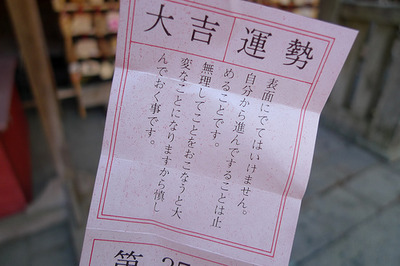 運勢
大吉
表面にでてはいけません。
自分から進んですることは止
めることです。
無理してことをおこなうと大
変なことになりますから慎し
んでおく事です。
第